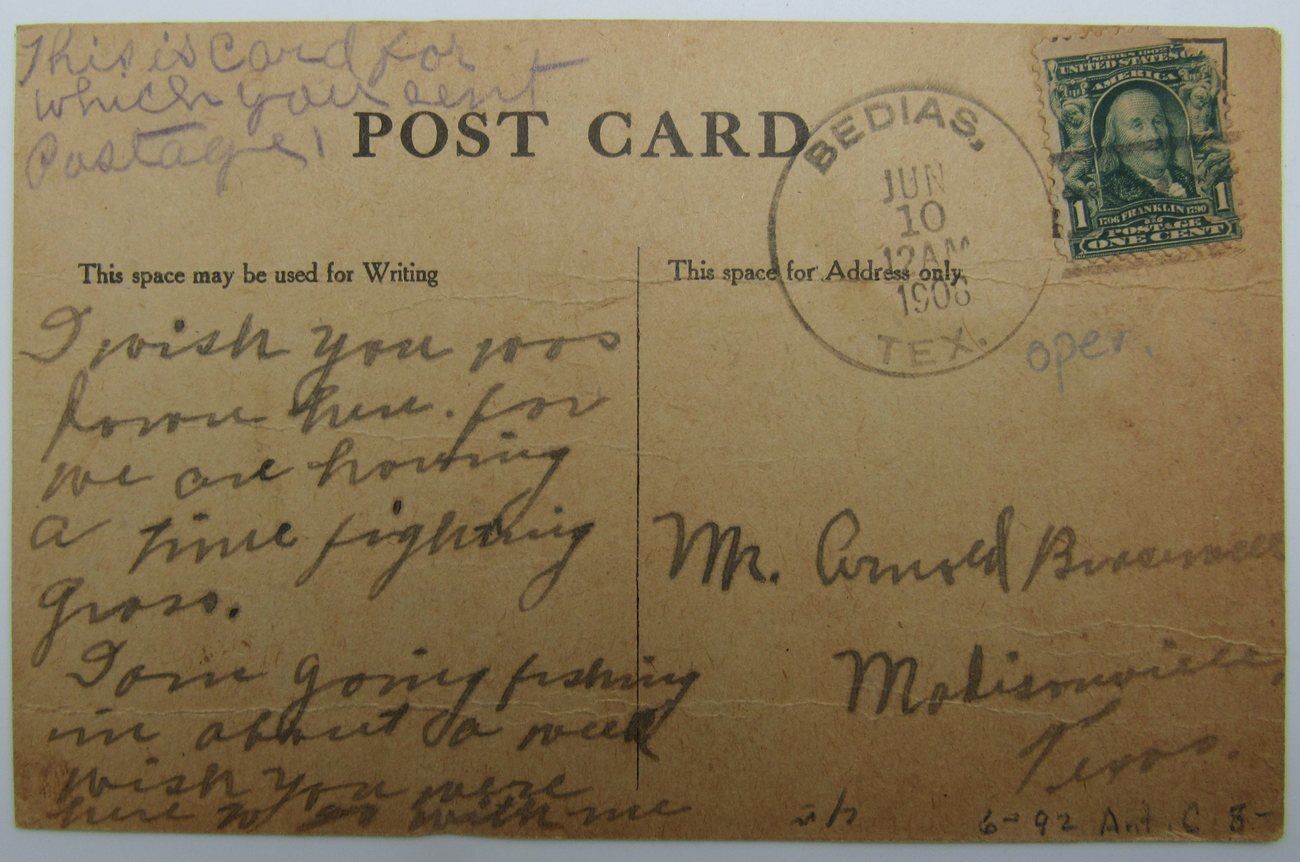 This is card for
which you sent
Postage!
POST CARD
BEDIAS,
JUN
10
12AM
1908
TEX.
SERIES 1902
UNITED STATES OF
AMERICA
1706 FRANKLIN 1790
1 1
POSTAGE
ONE CENT
This space may be used for Writing
I wish you was
down here. for
we are having
a time fighting
grass.
I am going fishing
in about a week
wish you were
here to go with me
This space for Address only.
oper.
Mr. Arnold
Madisonville,
Texas.
6-92 Ant. C 3-